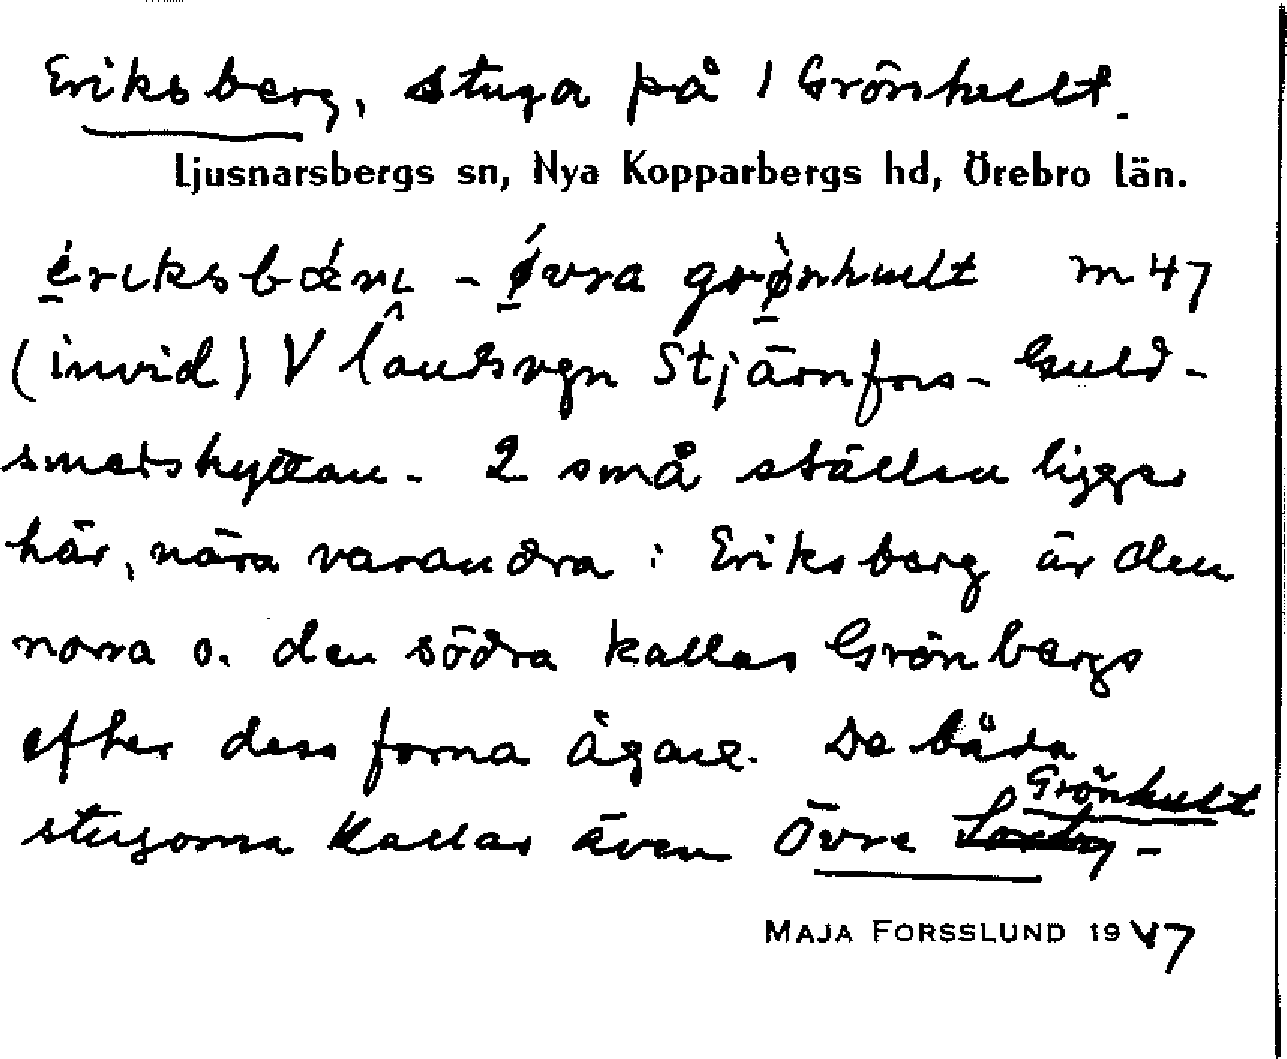 Eriksberg, stuga på 1 Grönhult.
Ljusnarsbergs sn, Nya Kopparbergs hd, Örebro län.
– øvra grønhult m 47
(invid) V landsvgn Stjärnfors-Guld-
smetshyttan. 2 små ställen ligger
här, nära varandra: Eriksberg är den
norra o. den södra kallas Grönbergs
efter dess forna ägare. De båda
Grönhult
stugorna kallas även Övre
MAJA FORSSLUND 1947